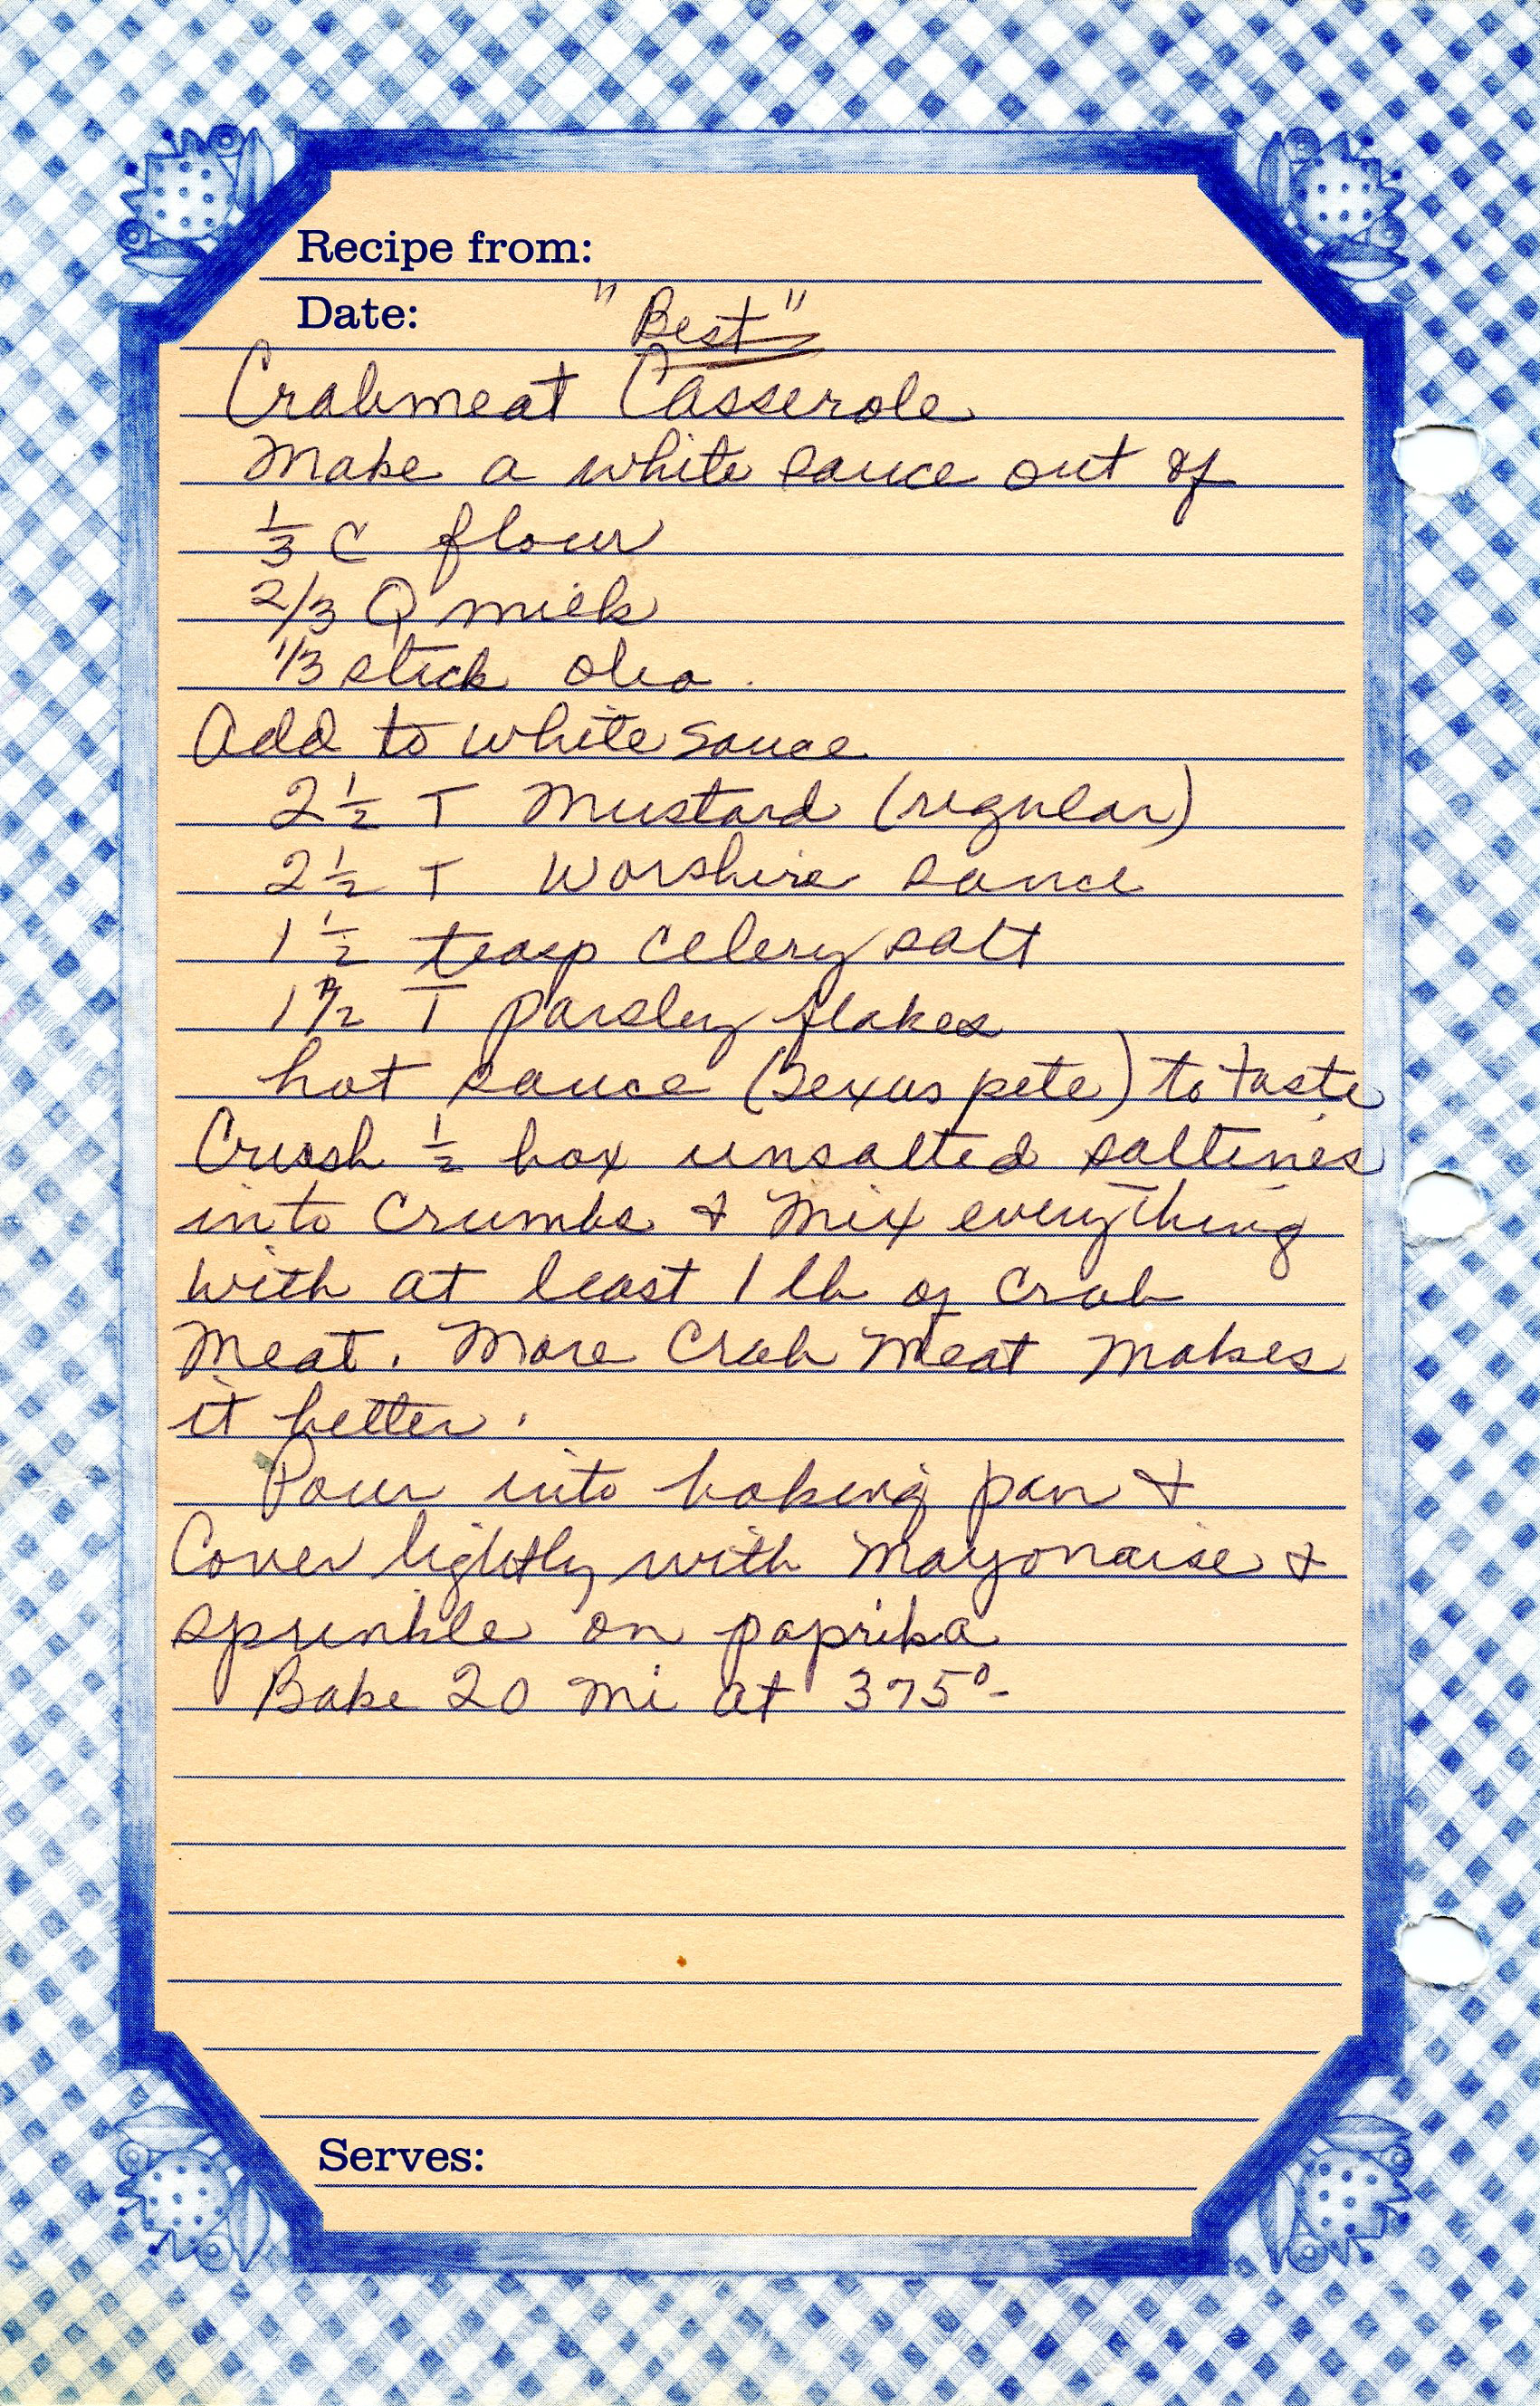 Recipe from:
Date: "Best"
Crabmeat Casserole
Make a white sauce out of
1/3 C flour
2/3 Q milk
1/3 stick oleo.
Add to white sauce
2 1/2 T Mustard (regular)
2 1/2 T Worshire sauce
1 1/2 teasp celery salt
1 1/2 T parsley flakes
hot sauce (Texas pete) to taste
Crush 1/2 box unsalted saltines
into Crumbs & Mix everything
with at least 1 lb of Crab
Meat. More Crab Meat Makes
it better.
Pour into baking pan &
Cover lightly with Mayonaise &
sprinkle on paprika
Bake 20 mi at 375°-
Serves: